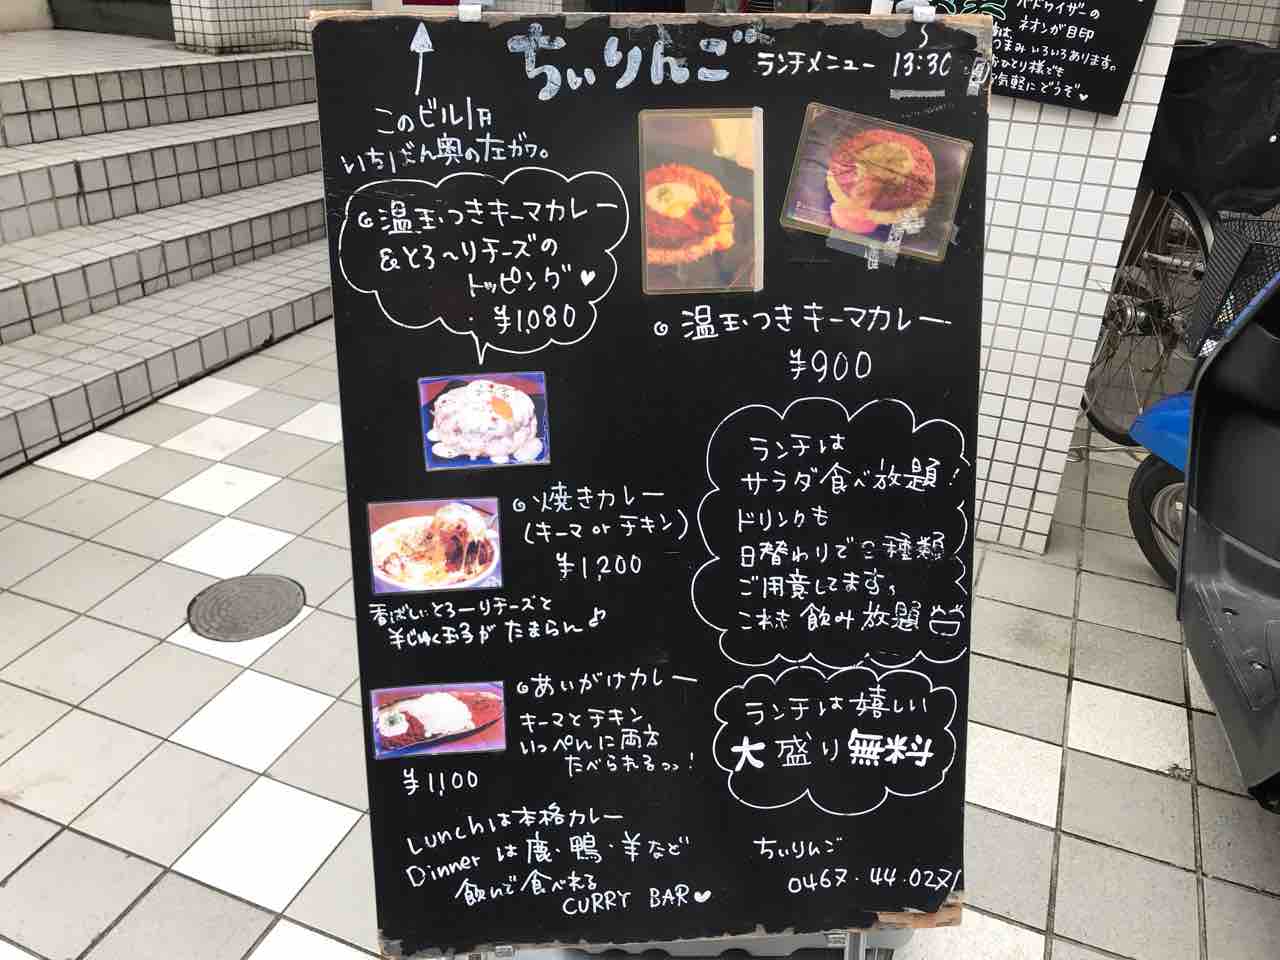 ちぃりんご ランチメニュー 13:30
このビル1F
いちばん奥の左ガワ。
温玉つきキーマカレー
&とろ〜りチーズの
トッピング♥
¥1,080
温玉つきキーマカレー
¥900
焼きカレー
(キーマ or チキン)
¥1,200
香ばしいとろ〜りチーズと
半じゅく玉子が たまらん♪
あいがけカレー
キーマとチキン
いっぺんに両方
たべられるっっ!
¥1,100
ランチは
サラダ食べ放題!
ドリンクも
日替わりで 種類
ご用意してます。
これも 飲み放題
ランチは嬉しい
大盛り無料
Lunchは本格カレー
Dinner は鹿・鴨・羊など
飲んで食べれる
CURRY BAR♥
ちぃりんご
0467.44.0271
バドワイザーの
ネオンが目印
つまみいろいろあります。
おひとり様でも
気軽にどうぞ♥